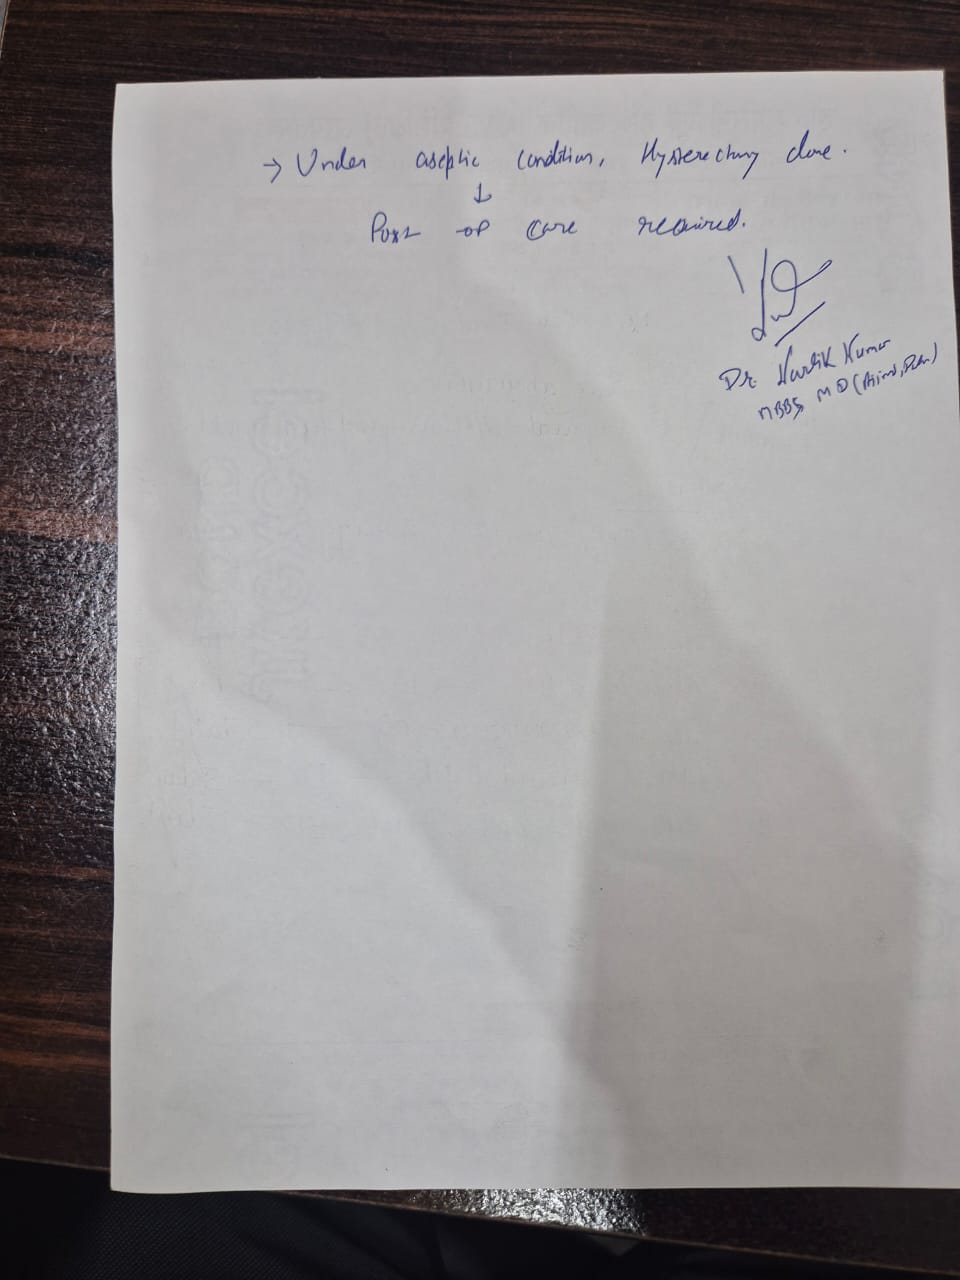 → Under aseptic condition, Hysterectomy done.
↓
Post op care required.
Dr. Hardik Kumar
MBBS, MD